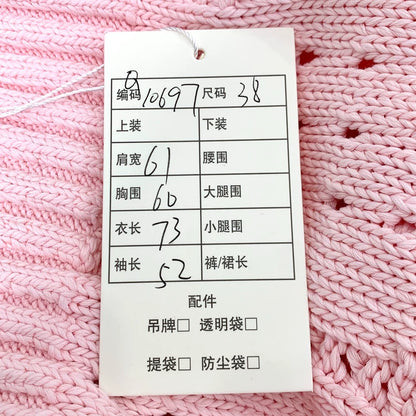 Q
编码 10697 尺码 38
上装 下装
肩宽 61 腰围
胸围 60 大腿围
衣长 73 小腿围
袖长 52 裤/裙长
配件
吊牌□ 透明袋□
提袋□ 防尘袋□